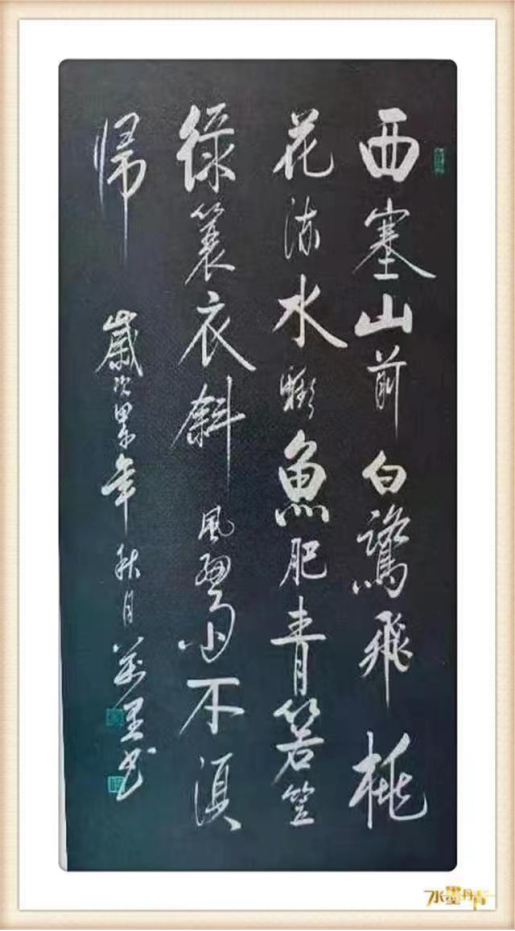 西塞山前白鷺飛桃
花流水鳜魚肥青箬笠
绿蓑衣斜風細雨不須
帰
歲次年秋月萬里书
水墨丹青